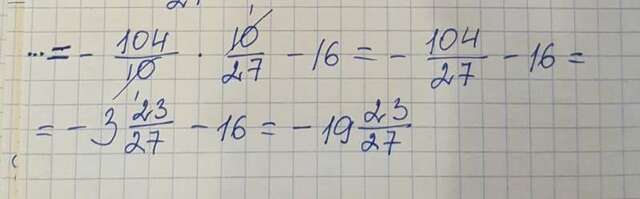 ...= - 104/10 · 10/27 - 16 = - 104/27 - 16 =
= - 3 23/27 - 16 = - 19 23/27